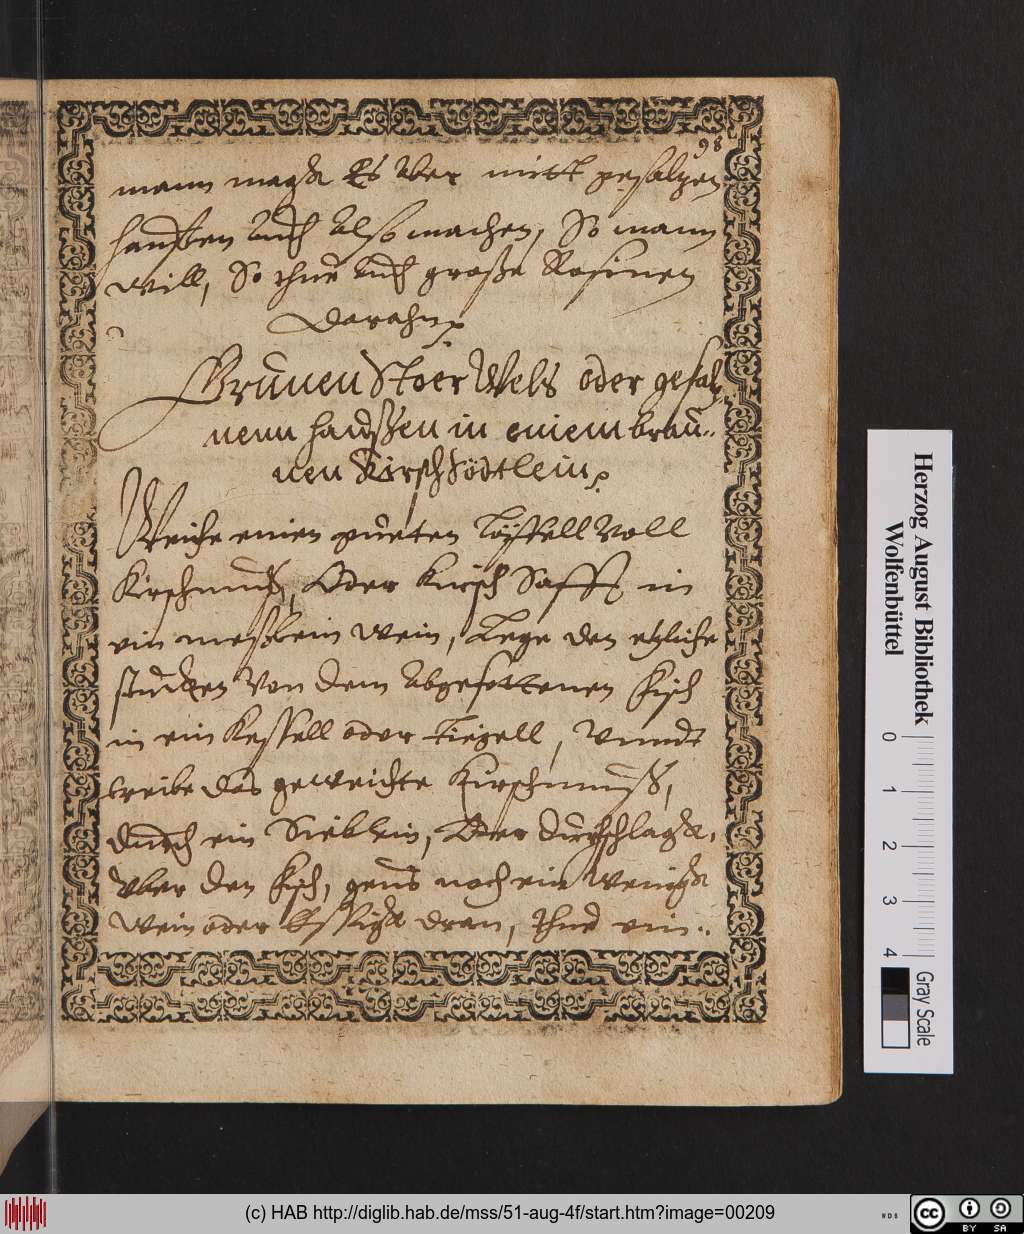 98
mann magk Es Aber mitt gesaltzen
haußen Auch Also machen, So mann
will, So thue Auch große Rosinen
darahn
Grunen Stoer Wels oder gesaltz
nenn haußen in einem brau..
nen KirschSödtlein
Weiche einen gueten Löffell voll
Kirschmuß, Oder Kirsch Safft in
ein meßlein wein, Lege den etzliche
stucken Von dem Abgesottenen fisch
in ein Kessell oder tiegell, Vnndt
treibe das geweichte Kirschmuß,
durch ein Sieblein, Oder durchschlagk,
vber den fisch, geuß noch ein wenigk
wein oder Essigk dran, thue ein..
Herzog August Bibliothek
Wolfenbüttel
0
1
2
3
4
Gray Scale
(c) HAB http://diglib.hab.de/mss/51-aug-4f/start.htm?image=00209
cc
BY SA